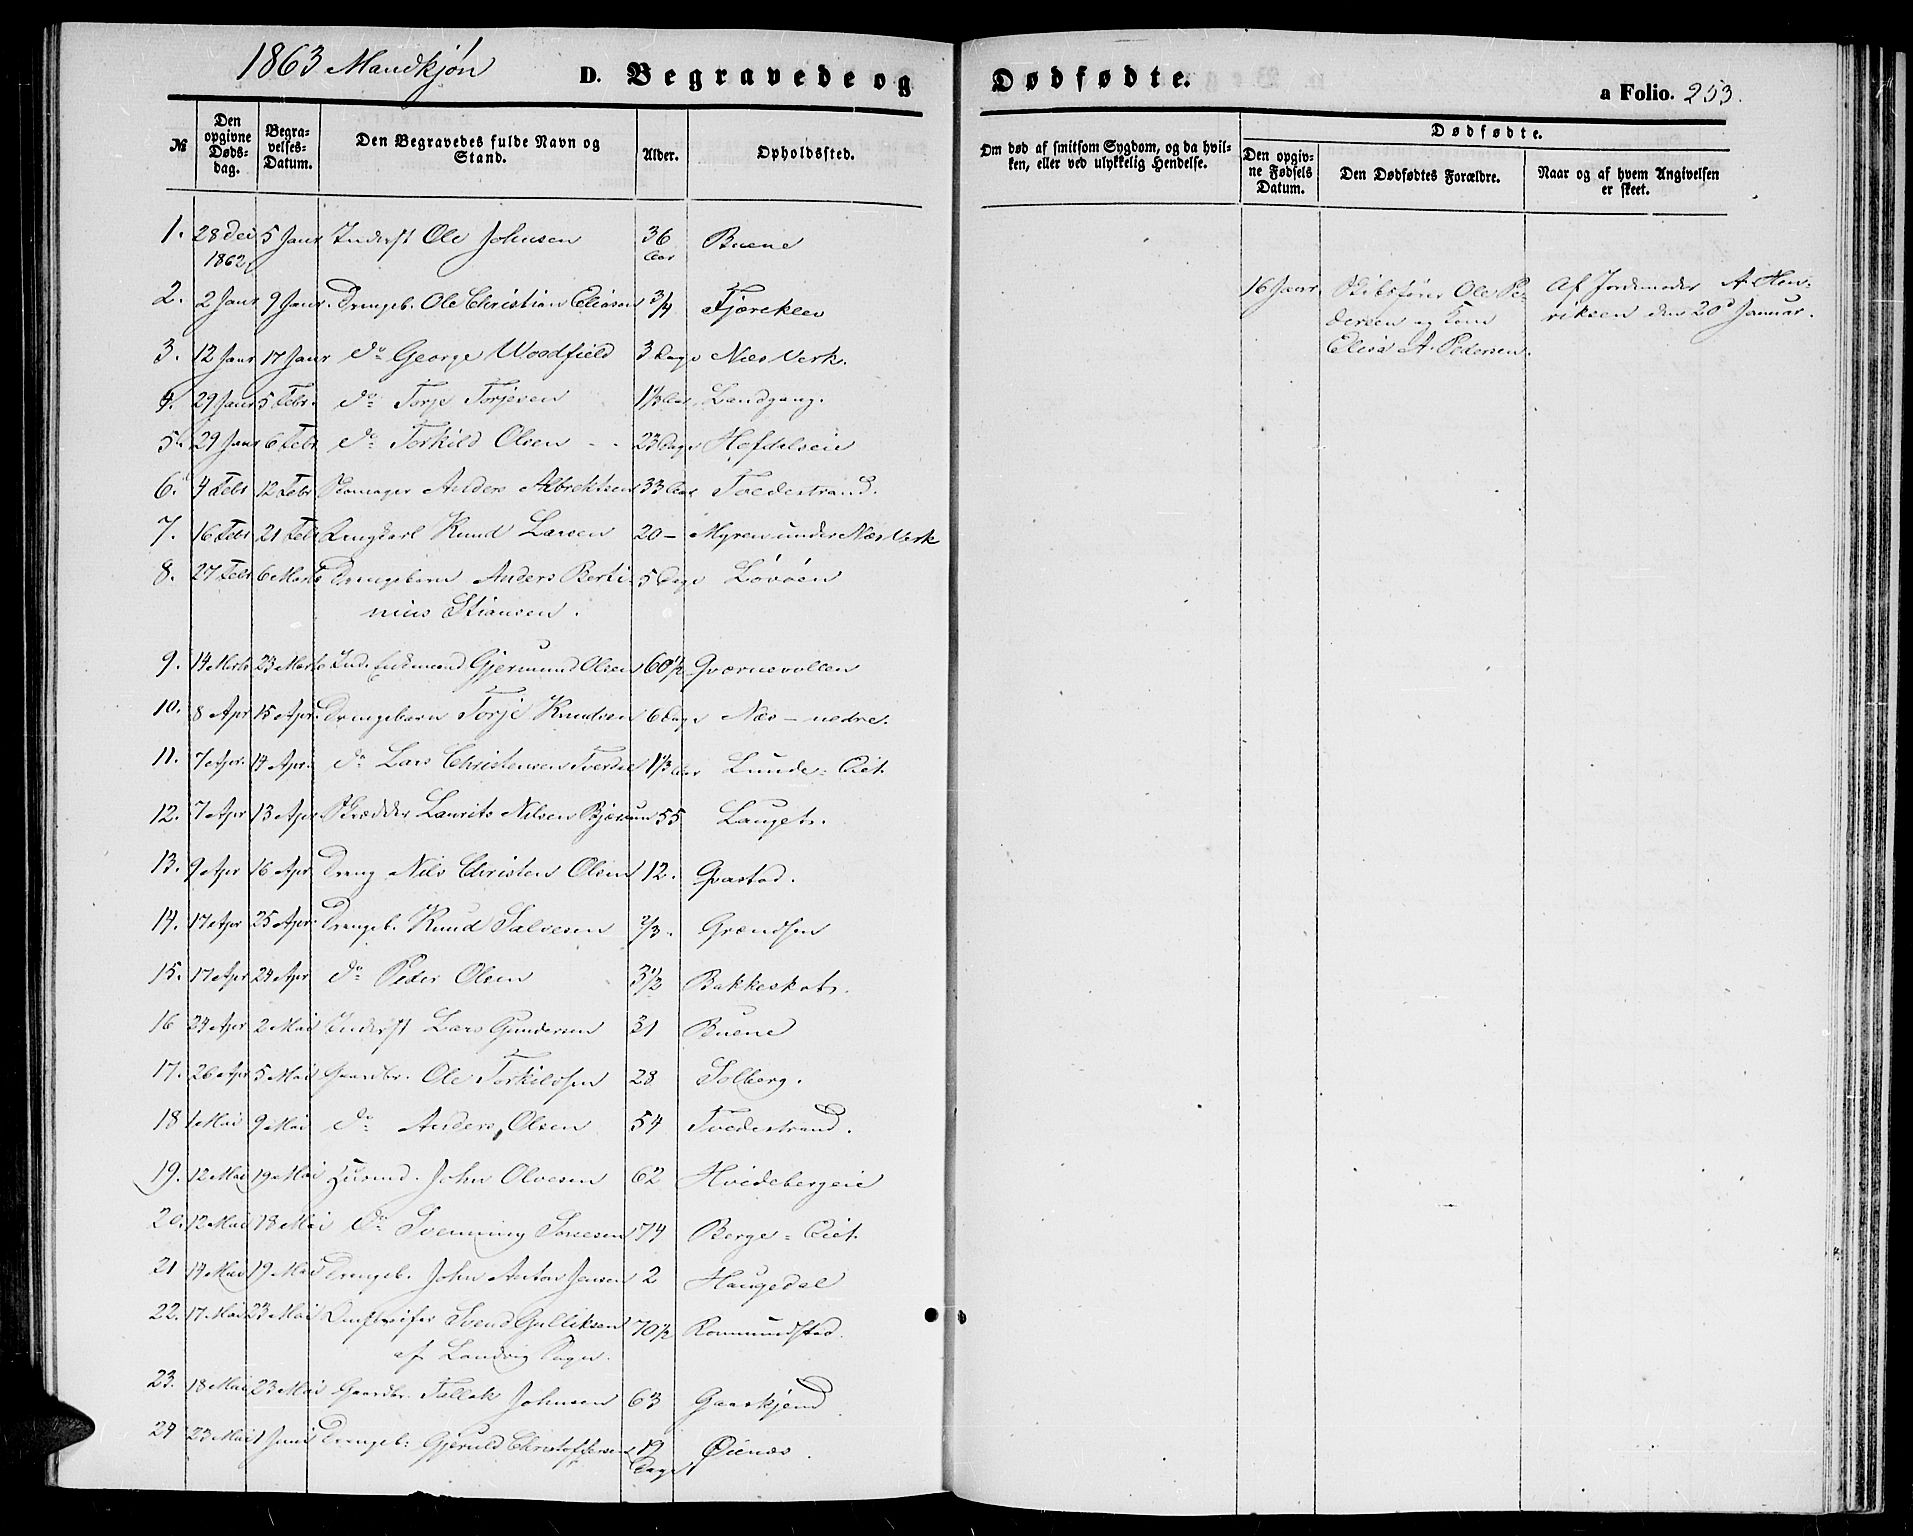 1863 Mandkjøn
D. Begravede og Dødfødte.
a Folio. 253.
№
Den opgivne Dødsdag.
Begravelses-Datum.
Den Begravedes fulde Navn og Stand.
Alder.
Opholdssted.
Om død af smitsom Sygdom, og da hvilken, eller ved ulykkelig Hendelse.
Dødfødte.
Den opgivne Fødsels Datum.
Den Dødfødtes Forældre.
Naar og af hvem Angivelsen er skeet.
1. 28 Dec 5 Janr Inderst Ole Johnsen 36 Buene
1862 Aar
2. 2 Janr 9 Janr. Drengeb. Ole Christian Eliasen 3/4 Fjæreklev
16 Janr. Skibsfører Ole Pe- Af Jordemoder A. Hen-
dersen og Kone riksen den 20d Januar.
Elisa A. Pedersen.
3. 12 Janr 17 Janr do George Woodfield 3 Dage Næs Verk.
4. 29 Janr 5 Febr. do Torje Torjesen 1 1/3 Aar Landgang.
5. 29 Janr 6 Febr do Torkild Olsen - - 23 Dage Hofdalseie
6. 4 Febr 12 Febr Skomager Anders Albrektsen 33 Aar Tvedestrand.
7. 16 Febr 21 Febr Ungkarl Knud Larsen 20 - Myren under Næs Verk
8. 27 Febr 6 Marts Drengebarn Anders Berti- 5 Dage Lövöen
nius Stiansen.
9. 14 Marts 23 Marts Gjermund Olsen 60 1/2 Qværnevollen
10. 8 Apr 15 Apr. Drengebarn Torje Knudsen 6 Dage Næs - nedre.
11. 7 Apr. 14 Apr. do Lars Christensen 1 1/3 Aar Lunde = Eiet.
12. 7 Apr 13 Apr Skrædder Laurits Nilsen 55 Lauget.
13. 9 Apr 16 Apr Dreng Nils Christen Olsen 12. Qvastad.
14. 17 Apr 25 Apr. Drengeb. Knud Salvesen 2/3. Grændsen
15. 17 Apr 24 Apr do Peder Olsen 3 1/2 Bakkeskot.
16 24 Apr 2 Mai Inderst Lars Gundersen 31 Buene
17. 26 Apr 5 Mai Gaardbr. Ole Torkildsen 28 Solberg.
18 1 Mai 9 Mai do Anders Olsen 54 Tvedestrand.
19. 12 Mai 19 Mai Husmd. John Olvesen 62 Hvidebergeie
20. 12 Mai 18 Mai do Svenning 74 Berge = Eiet.
21 14 Mai 19 Mai Drengeb. John Anton Jensen 2 Haugedal
22. 17 Mai 23 Mai Omstreifer Svend Gulliksen 70 1/2 Rommundstad.
af Landvig
23. 18 Mai 23 Mai Gaardbr. Tallak Johnsen 63 Gaaskjend
24 23 Mai 1 Juni Drengeb. Gjeruld Christoffersen 12 Øienæs.
Dage